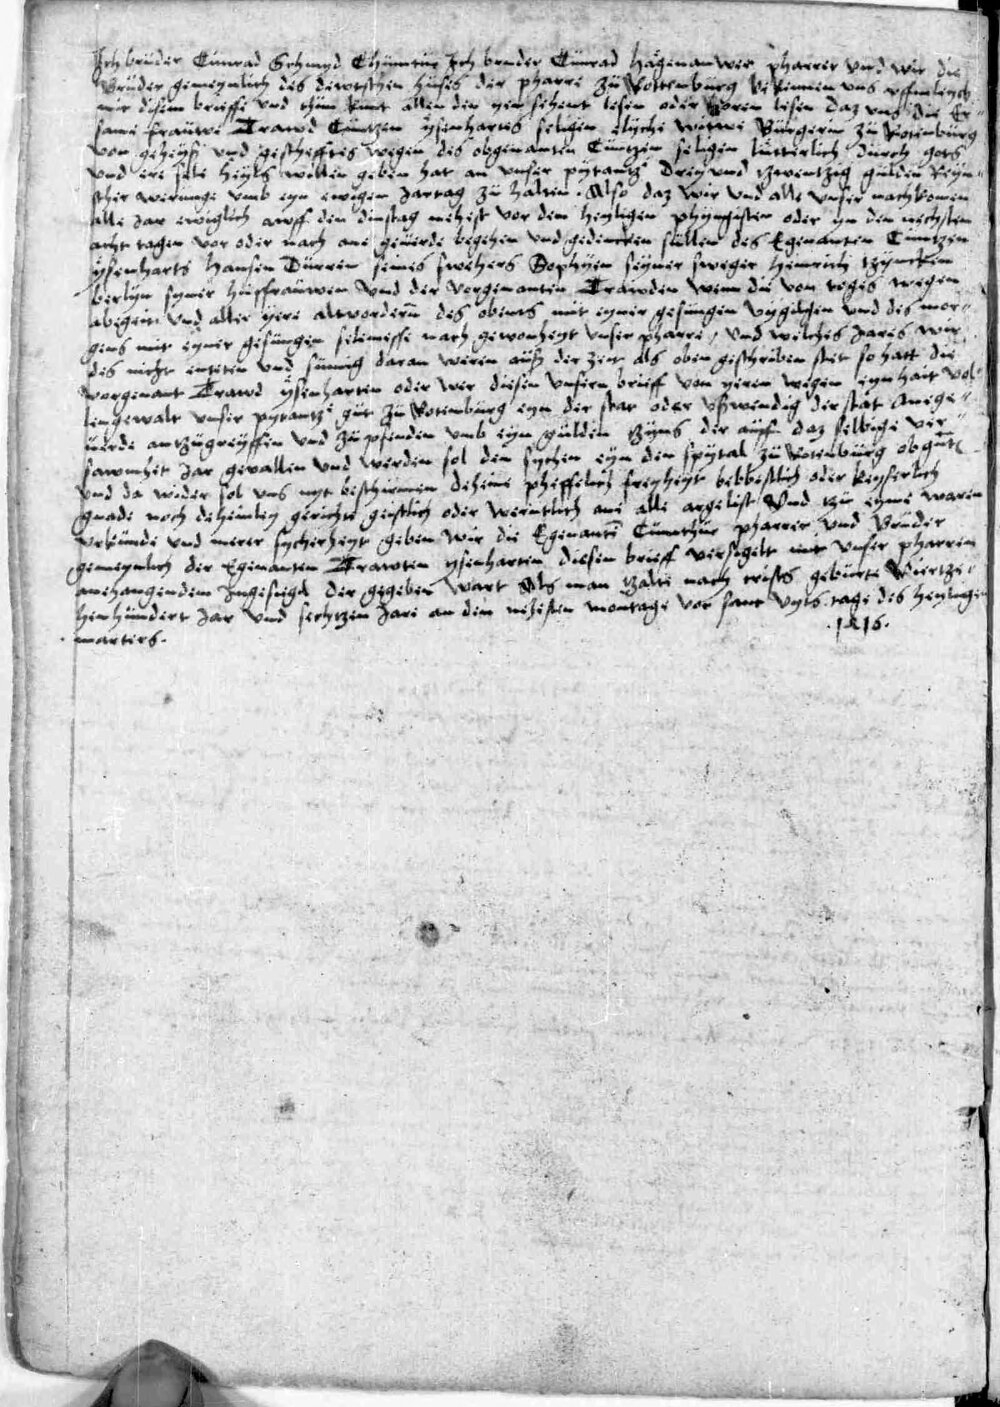 Ich bruder Cunrad Schmyd Chumtur Ich bruder Cunrad Hagenauwer pharrer vnd wir die
Bruder gemeynlich des dewtschen huses der pharre zu Rottenburg bekennen vns offenlych
mit disem brieffe vnd thun kunt allen den yen sehent lesen oder horen lesen daz vns die Er-
same frauwe Trawd Cuntzen ysenhartes seligen elyche witwe Burgerin zu Rotenburg
von geheyß vnd geschefftes wegen des obgenanten Cuntzen seligen lutterlich durch gots
vnd ire sele heyls willen geben hat an vnser pytantz Drey vnd tzwentzig gulden Reyn-
scher werunge vmb eyn ewigen Jartag zu halten Also daz wir vnd alle vnser nachkomen
alle Jar ewiglich awff den dinstag nehest vor dem heyligen phyngisten oder yn den nechsten
acht tagen vor oder nach ane geuerde begehen vnd gedencken sullen des Egenanten Cuntzen
ysenharts Hansen Durren seines swehers Sophyen seyner sweger Heinrich
berlyn syner hußfrauwen vnd der vorgenanten Trawden wenn die von todes wegen
abeget vnd aller yere altvordern des obents mit eyner gesungen vigilgen vnd des mor-
gens mit eyner gesungen selemesse nach gewonheyt vnser pharre / vnd welches Jares wir
des nicht enteten vnd sumig daran weren auß der zeit als oben geschriben stet so hatt die
vorgenant Trawd ysenharten oder wer diesen vnsern brieff von yeren wegen eynhait vol-
lengewalt vnser pytantz gut zu Rotenburg eyn der stat oder vßwendig der stat Anege-
uerde antzugreyffen vnd zu pfenden vmb eyn gulden tzyns der auff daz selbige ver-
sawmhet Jar gevallen vnd werden sol den sychen eyn den spytal zu Rotenburg obgnt
vnd da wider sol vns nyt beschirmen deheine pheffelich freyheyt bebbestlich oder keyserlich
gnade noch deheinley gerichte geistlich oder werntlich ane alle argelist Vnd tzu eyme waren
vrkunde vnd merer sycherheyt geben wir die Egenanten Cumthur pharrer vnd Bruder
gemeynlich der Egenanten Trawten ysenharten diesen brieff versigelt mit vnser pharren
anehangendem Jngesigel der gegeben wart Als man tzalte nach crists geburte Viertze-
henhundert Jar vnd sechtzen Jare an dem nehesten montage vor sant vyts tage des heyligen
marters . .1416.